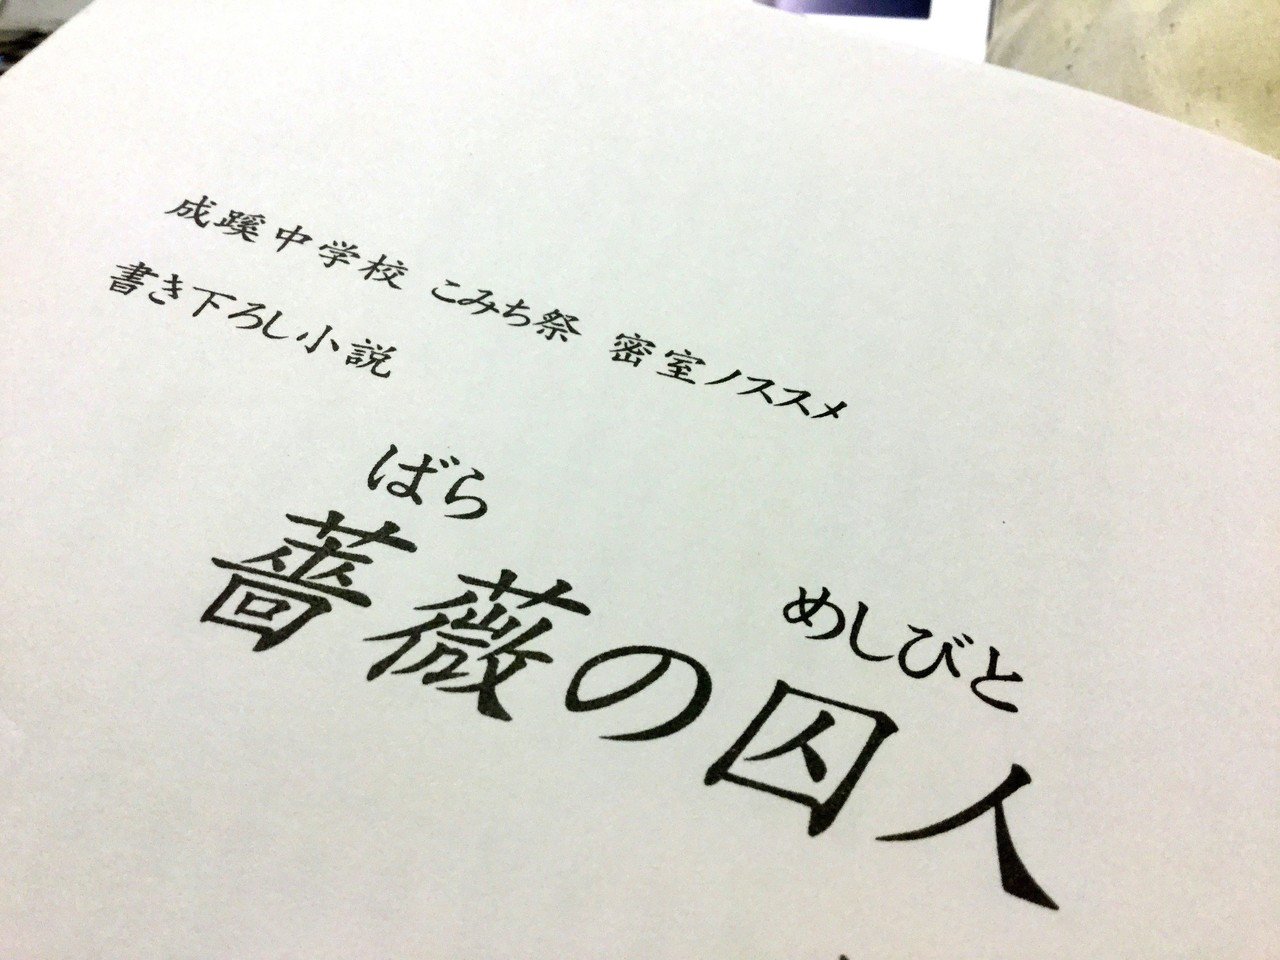 成蹊中学校 こみち祭 密室ノススメ
書き下ろし小説
ばら めしびと
薔薇の囚人